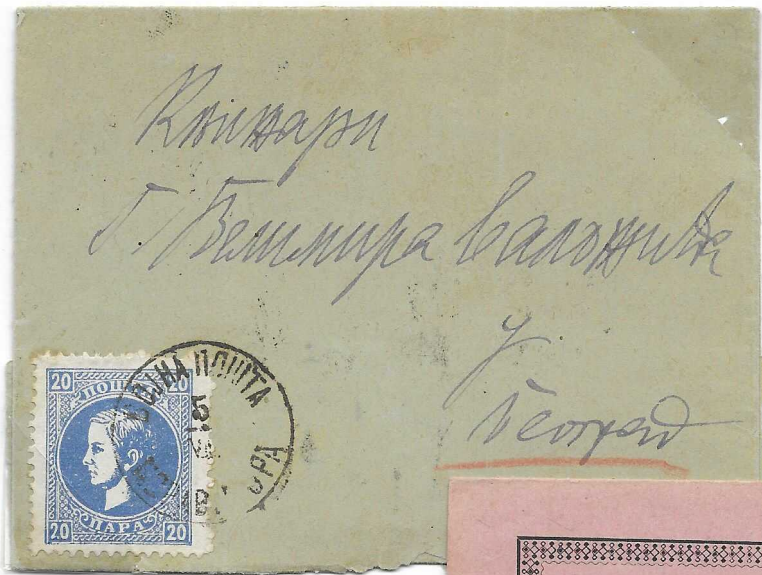 Књижари
Г. Велимира Валожића
у
Београд
20 ПОШ 20
20 ПАРА 20
ВОЈНА ПОШТА
5